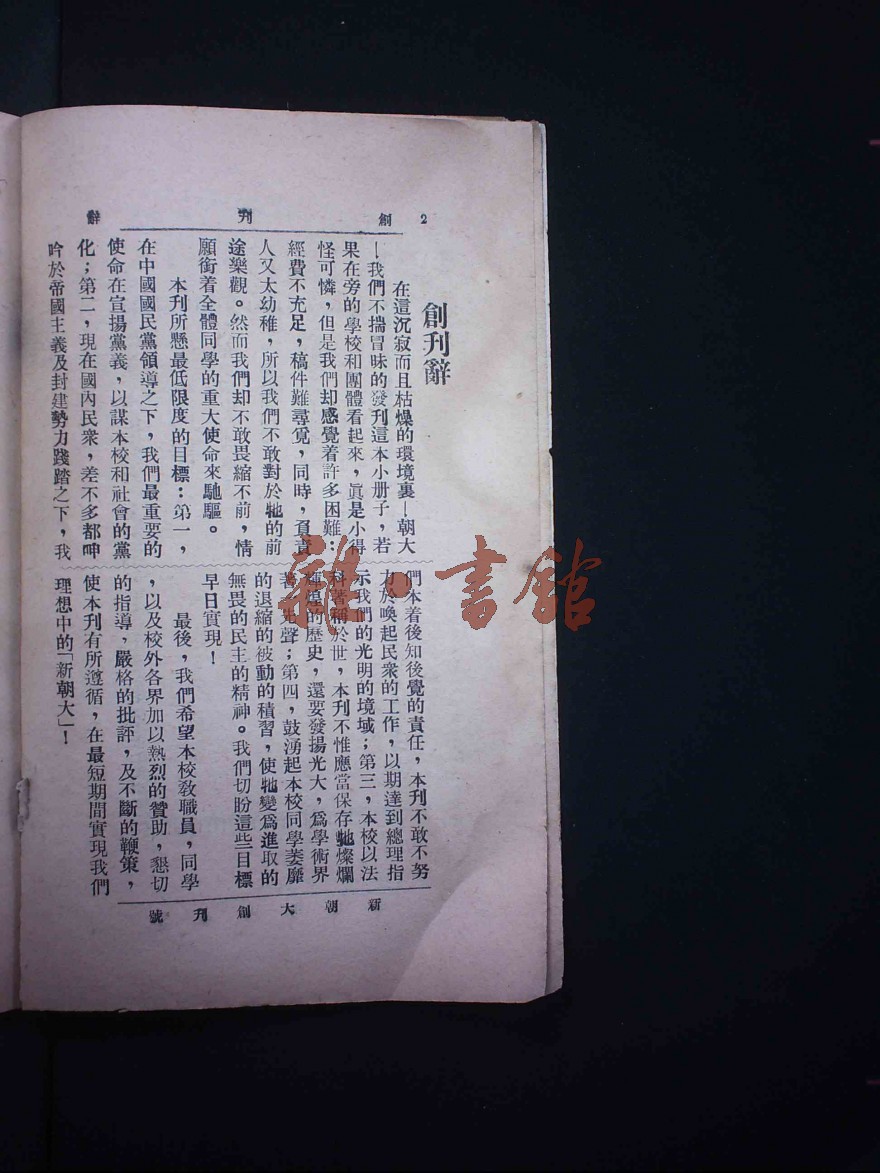 2 創刊辭
創刊辭
在這沉寂而且枯燥的環境裏—朝大
—我們不揣冒昧的發刊這本小册子，若
果在旁的學校和團體看起來，眞是小得
怪可憐，但是我們却感覺着許多困難：
經費不充足，稿件難尋覓，同時，負責
人又太幼稚，所以我們不敢對於牠的前
途樂觀。然而我們却不敢畏縮不前，情
願銜着全體同學的重大使命來馳驅。
本刊所懸最低限度的目標：第一，
在中國國民黨領導之下，我們最重要的
使命在宣揚黨義，以謀本校和社會的黨
化；第二，現在國內民衆，差不多都呻
吟於帝國主義及封建勢力踐踏之下，我
們本着後知後覺的責任，本刊不敢不努
力於喚起民衆的工作，以期達到總理指
示我們的光明的境域；第三，本校以法
科著稱於世，本刊不惟應當保存牠燦爛
輝煌的歷史，還要發揚光大，爲學術界
著先聲；第四，鼓湧起本校同學萎靡
的退縮的被動的積習，使牠變爲進取的
無畏的民主的精神。我們切盼這些目標
早日實現！
最後，我們希望本校敎職員，同學
，以及校外各界加以熱烈的贊助，懇切
的指導，嚴格的批評，及不斷的鞭策，
使本刊有所遵循，在最短期間實現我們
理想中的「新朝大」！
新朝大創刊號
雜·書館